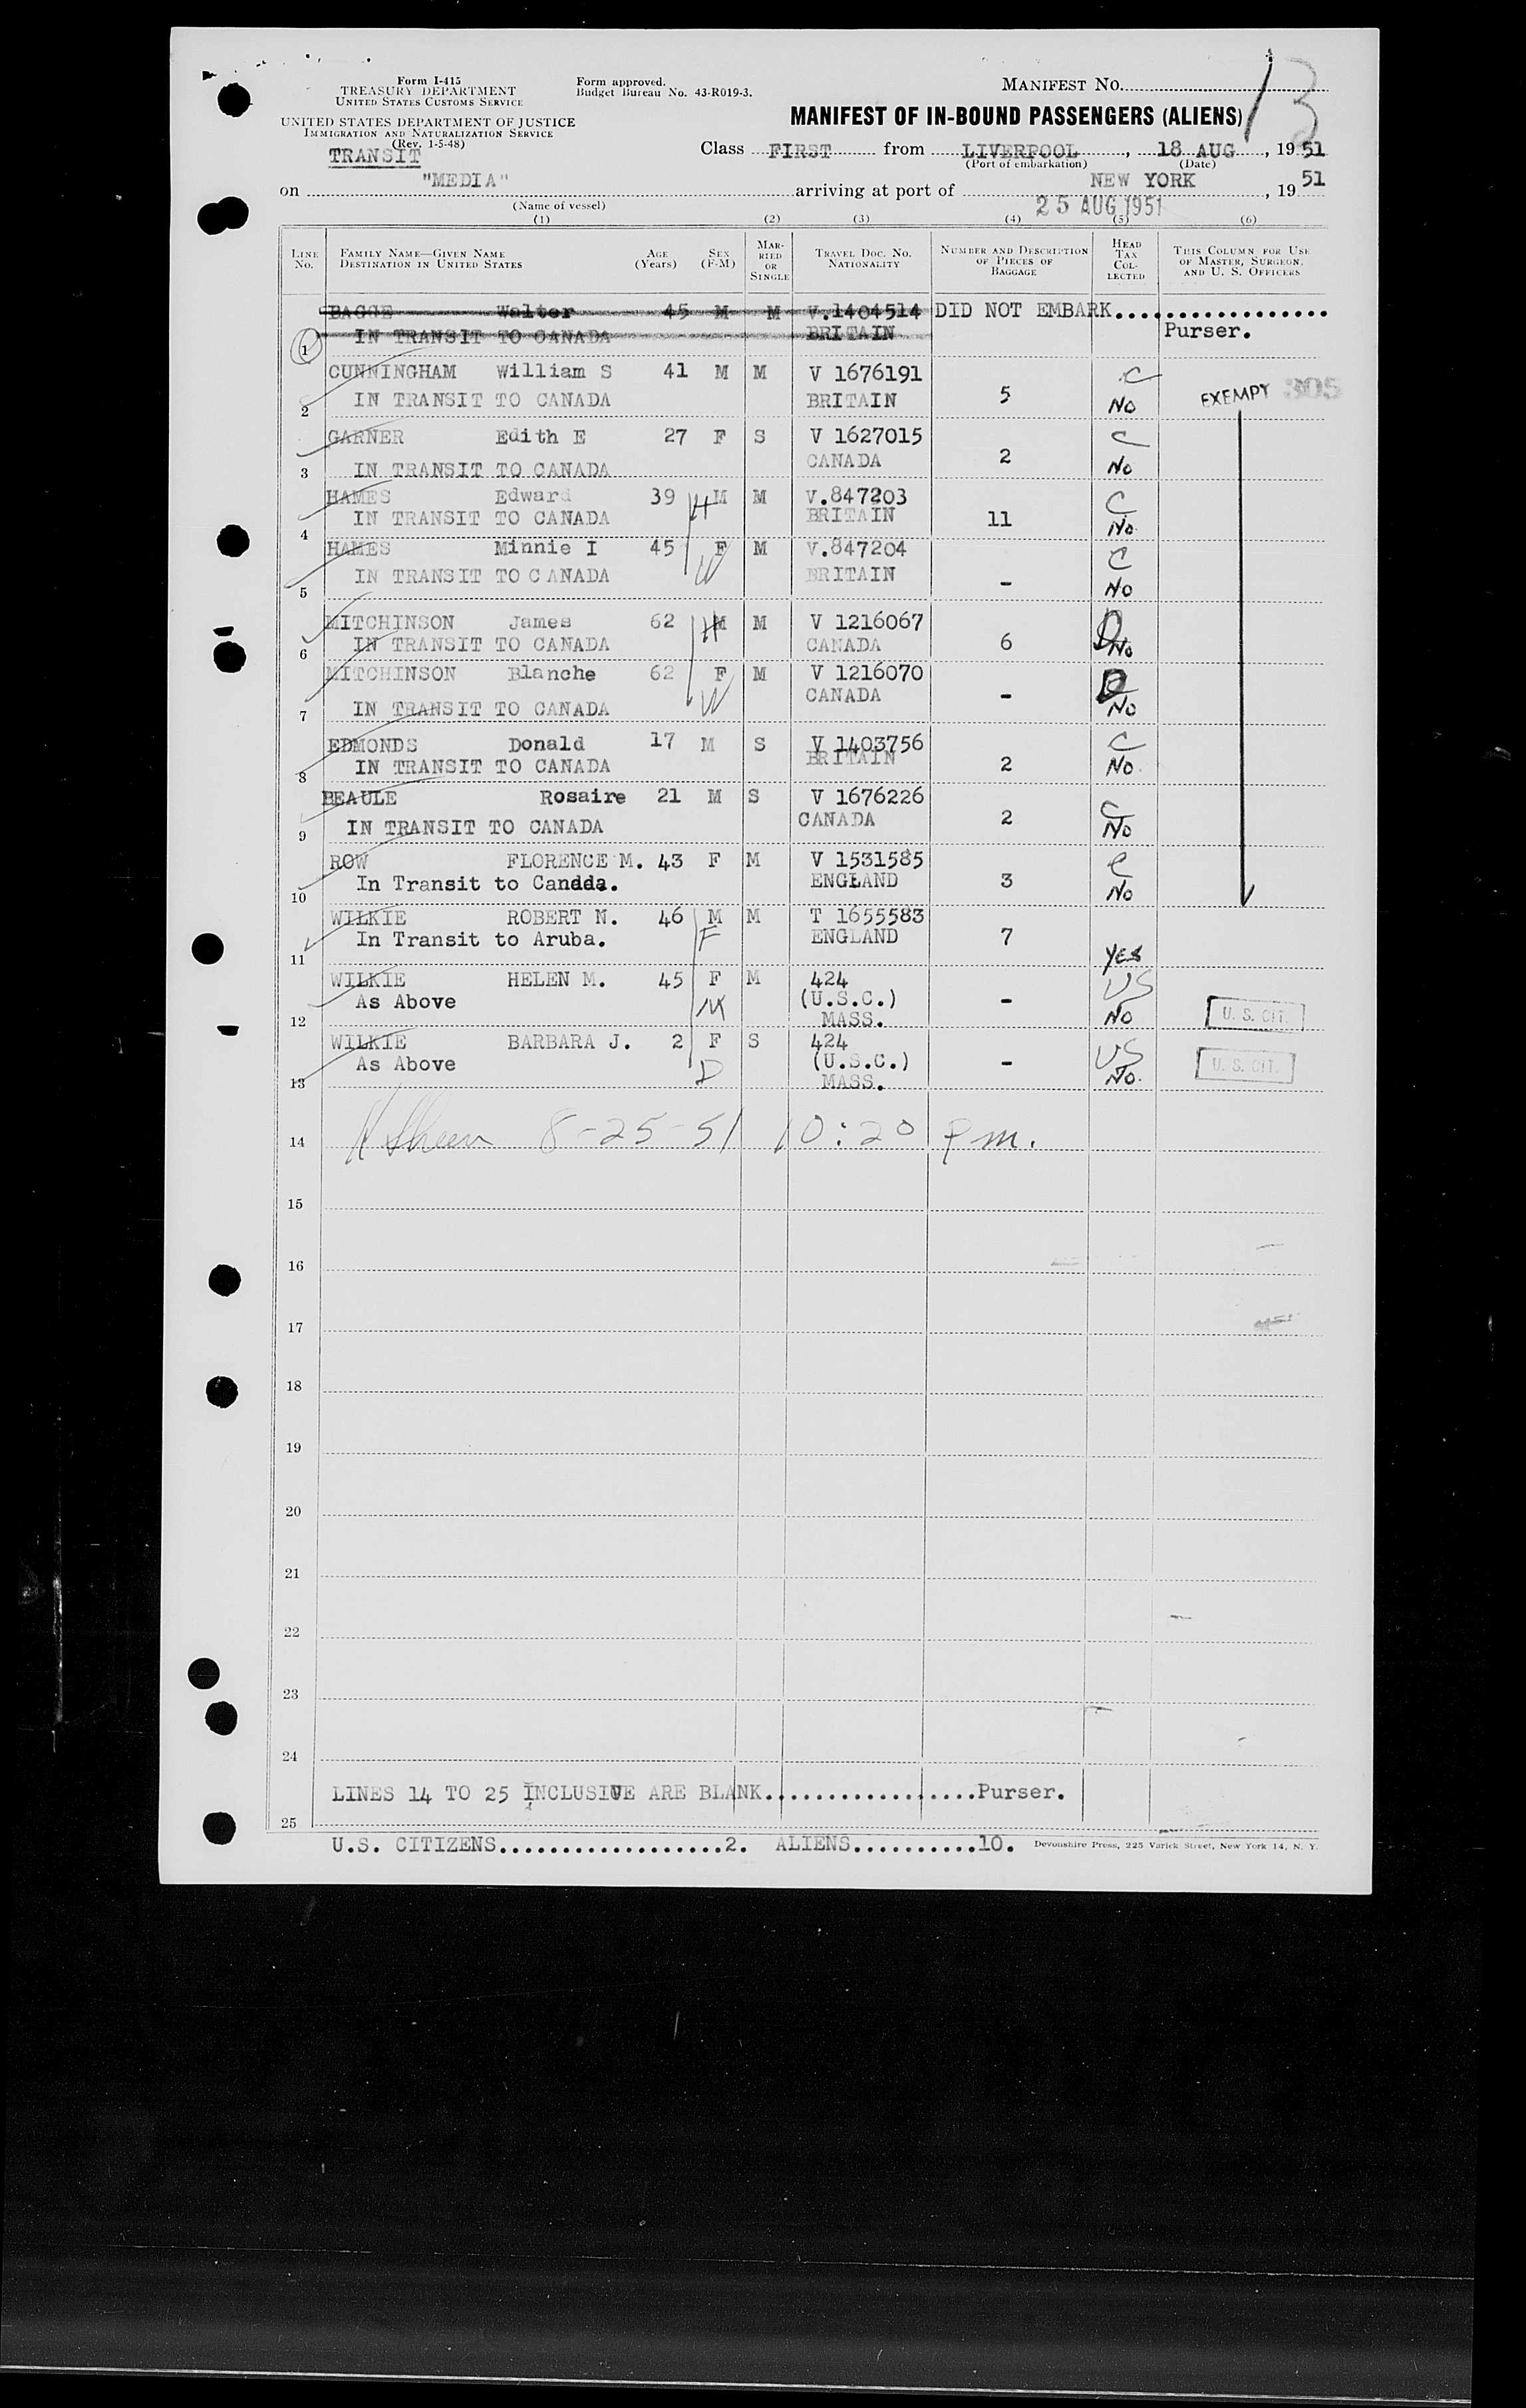 Form I-415
TREASURY DEPARTMENT
UNITED STATES CUSTOMS SERVICE
UNITED STATES DEPARTMENT OF JUSTICE
IMMIGRATION AND NATURALIZATION SERVICE
(Rev. 1-5-48)
TRANSIT
Form approved.
Budget Bureau No. 43-R019-3.
MANIFEST NO. 13
MANIFEST OF IN-BOUND PASSENGERS (ALIENS)
Class FIRST from LIVERPOOL, 18 AUG, 1951
(Port of embarkation) (Date)
on "MEDIA" arriving at port of NEW YORK, 1951
(Name of vessel)
25 AUG 1951
(1) (2) (3) (4) (5) (6)
LINE NO. FAMILY NAME—GIVEN NAME DESTINATION IN UNITED STATES AGE (Years) SEX (F-M) MARRIED OR SINGLE TRAVEL DOC. NO. NATIONALITY NUMBER AND DESCRIPTION OF PIECES OF BAGGAGE HEAD TAX COLLECTED THIS COLUMN FOR USE OF MASTER, SURGEON, AND U. S. OFFICERS
BAGGE Walter 45 M M V.1404514 DID NOT EMBARK..................
1 IN TRANSIT TO CANADA BRITAIN Purser.
CUNNINGHAM William S 41 M M V 1676191 C
2 IN TRANSIT TO CANADA BRITAIN 5 No EXEMPT 305
GARNER Edith E 27 F S V 1627015 C
3 IN TRANSIT TO CANADA CANADA 2 No
HAMES Edward 39 H M M V.847203 C
4 IN TRANSIT TO CANADA BRITAIN 11 No
HAMES Minnie I 45 F M V.847204 C
5 IN TRANSIT TO CANADA W BRITAIN - No
MITCHINSON James 62 H M M V 1216067 D
6 IN TRANSIT TO CANADA CANADA 6 No
MITCHINSON Blanche 62 F M V 1216070 D
7 IN TRANSIT TO CANADA W CANADA - No
EDMONDS Donald 17 M S V 1403756 C
8 IN TRANSIT TO CANADA BRITAIN 2 No.
BEAULE Rosaire 21 M S V 1676226 C
9 IN TRANSIT TO CANADA CANADA 2 No
ROW FLORENCE M. 43 F M V 1531585 C
10 In Transit to Candda. ENGLAND 3 No
WILKIE ROBERT N. 46 M M T 1655583
11 In Transit to Aruba. F ENGLAND 7 YES
WILKIE HELEN M. 45 F M 424 US
As Above M (U.S.C.) -
12 MASS. No U. S. CIT.
WILKIE BARBARA J. 2 F S 424 US
As Above D (U.S.C.) - U. S. CIT.
13 MASS. No.
14 8-25-51 10:20 Pm.
15
16
17
18
19
20
21
22
23
24
LINES 14 TO 25 INCLUSIVE ARE BLANK..................Purser.
25
U.S. CITIZENS...................2. ALIENS...........10. Devonshire Press, 225 Varick Street, New York 14, N. Y.